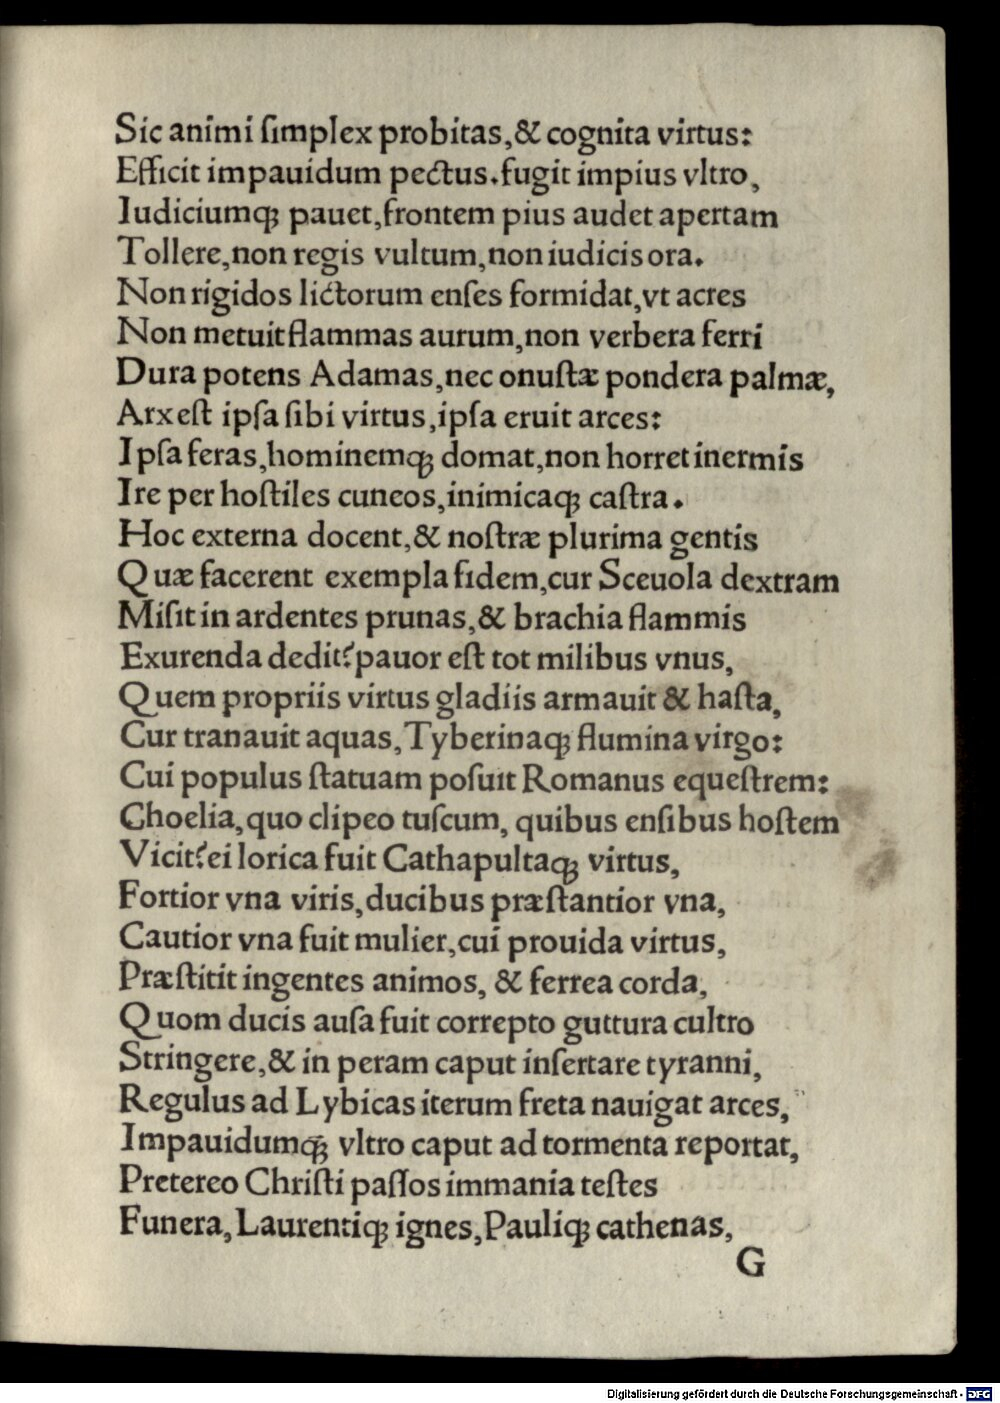 Sic animi ſimplex probitas,& cognita virtus:
Efficit impauidum pectus.fugit impius vltro,
Iudiciumqꝫ pauet,frontem pius audet apertam
Tollere,non regis vultum,non iudicis ora.
Non rigidos lictorum enſes formidat,vt acres
Non metuit flammas aurum,non verbera ferri
Dura potens Adamas,nec onuſtæ pondera palmæ,
Arx eſt ipſa ſibi virtus,ipſa eruit arces:
Ipſa feras,hominemqꝫ domat,non horret inermis
Ire per hoſtiles cuneos,inimicaqꝫ caſtra.
Hoc externa docent,& noſtræ plurima gentis
Quæ facerent exempla fidem,cur Sceuola dextram
Miſit in ardentes prunas,& brachia flammis
Exurenda dedit?pauor eſt tot milibus vnus,
Quem propriis virtus gladiis armauit & haſta,
Cur tranauit aquas,Tyberinaqꝫ flumina virgo:
Cui populus ſtatuam poſuit Romanus equeſtrem:
Choelia,quo clipeo tuſcum, quibus enſibus hoſtem
Vicit?ei lorica fuit Cathapultaqꝫ virtus,
Fortior vna viris,ducibus præſtantior vna,
Cautior vna fuit mulier,cui prouida virtus,
Præſtitit ingentes animos, & ferrea corda,
Quom ducis auſa fuit correpto guttura cultro
Stringere,& in peram caput inſertare tyranni,
Regulus ad Lybicas iterum freta nauigat arces,
Impauidumqꝫ vltro caput ad tormenta reportat,
Pretereo Chriſti paſſos immania teſtes
Funera,Laurentiqꝫ ignes,Pauliqꝫ cathenas,
G
Digitalisierung gefördert durch die Deutsche Forschungsgemeinschaft - DFG